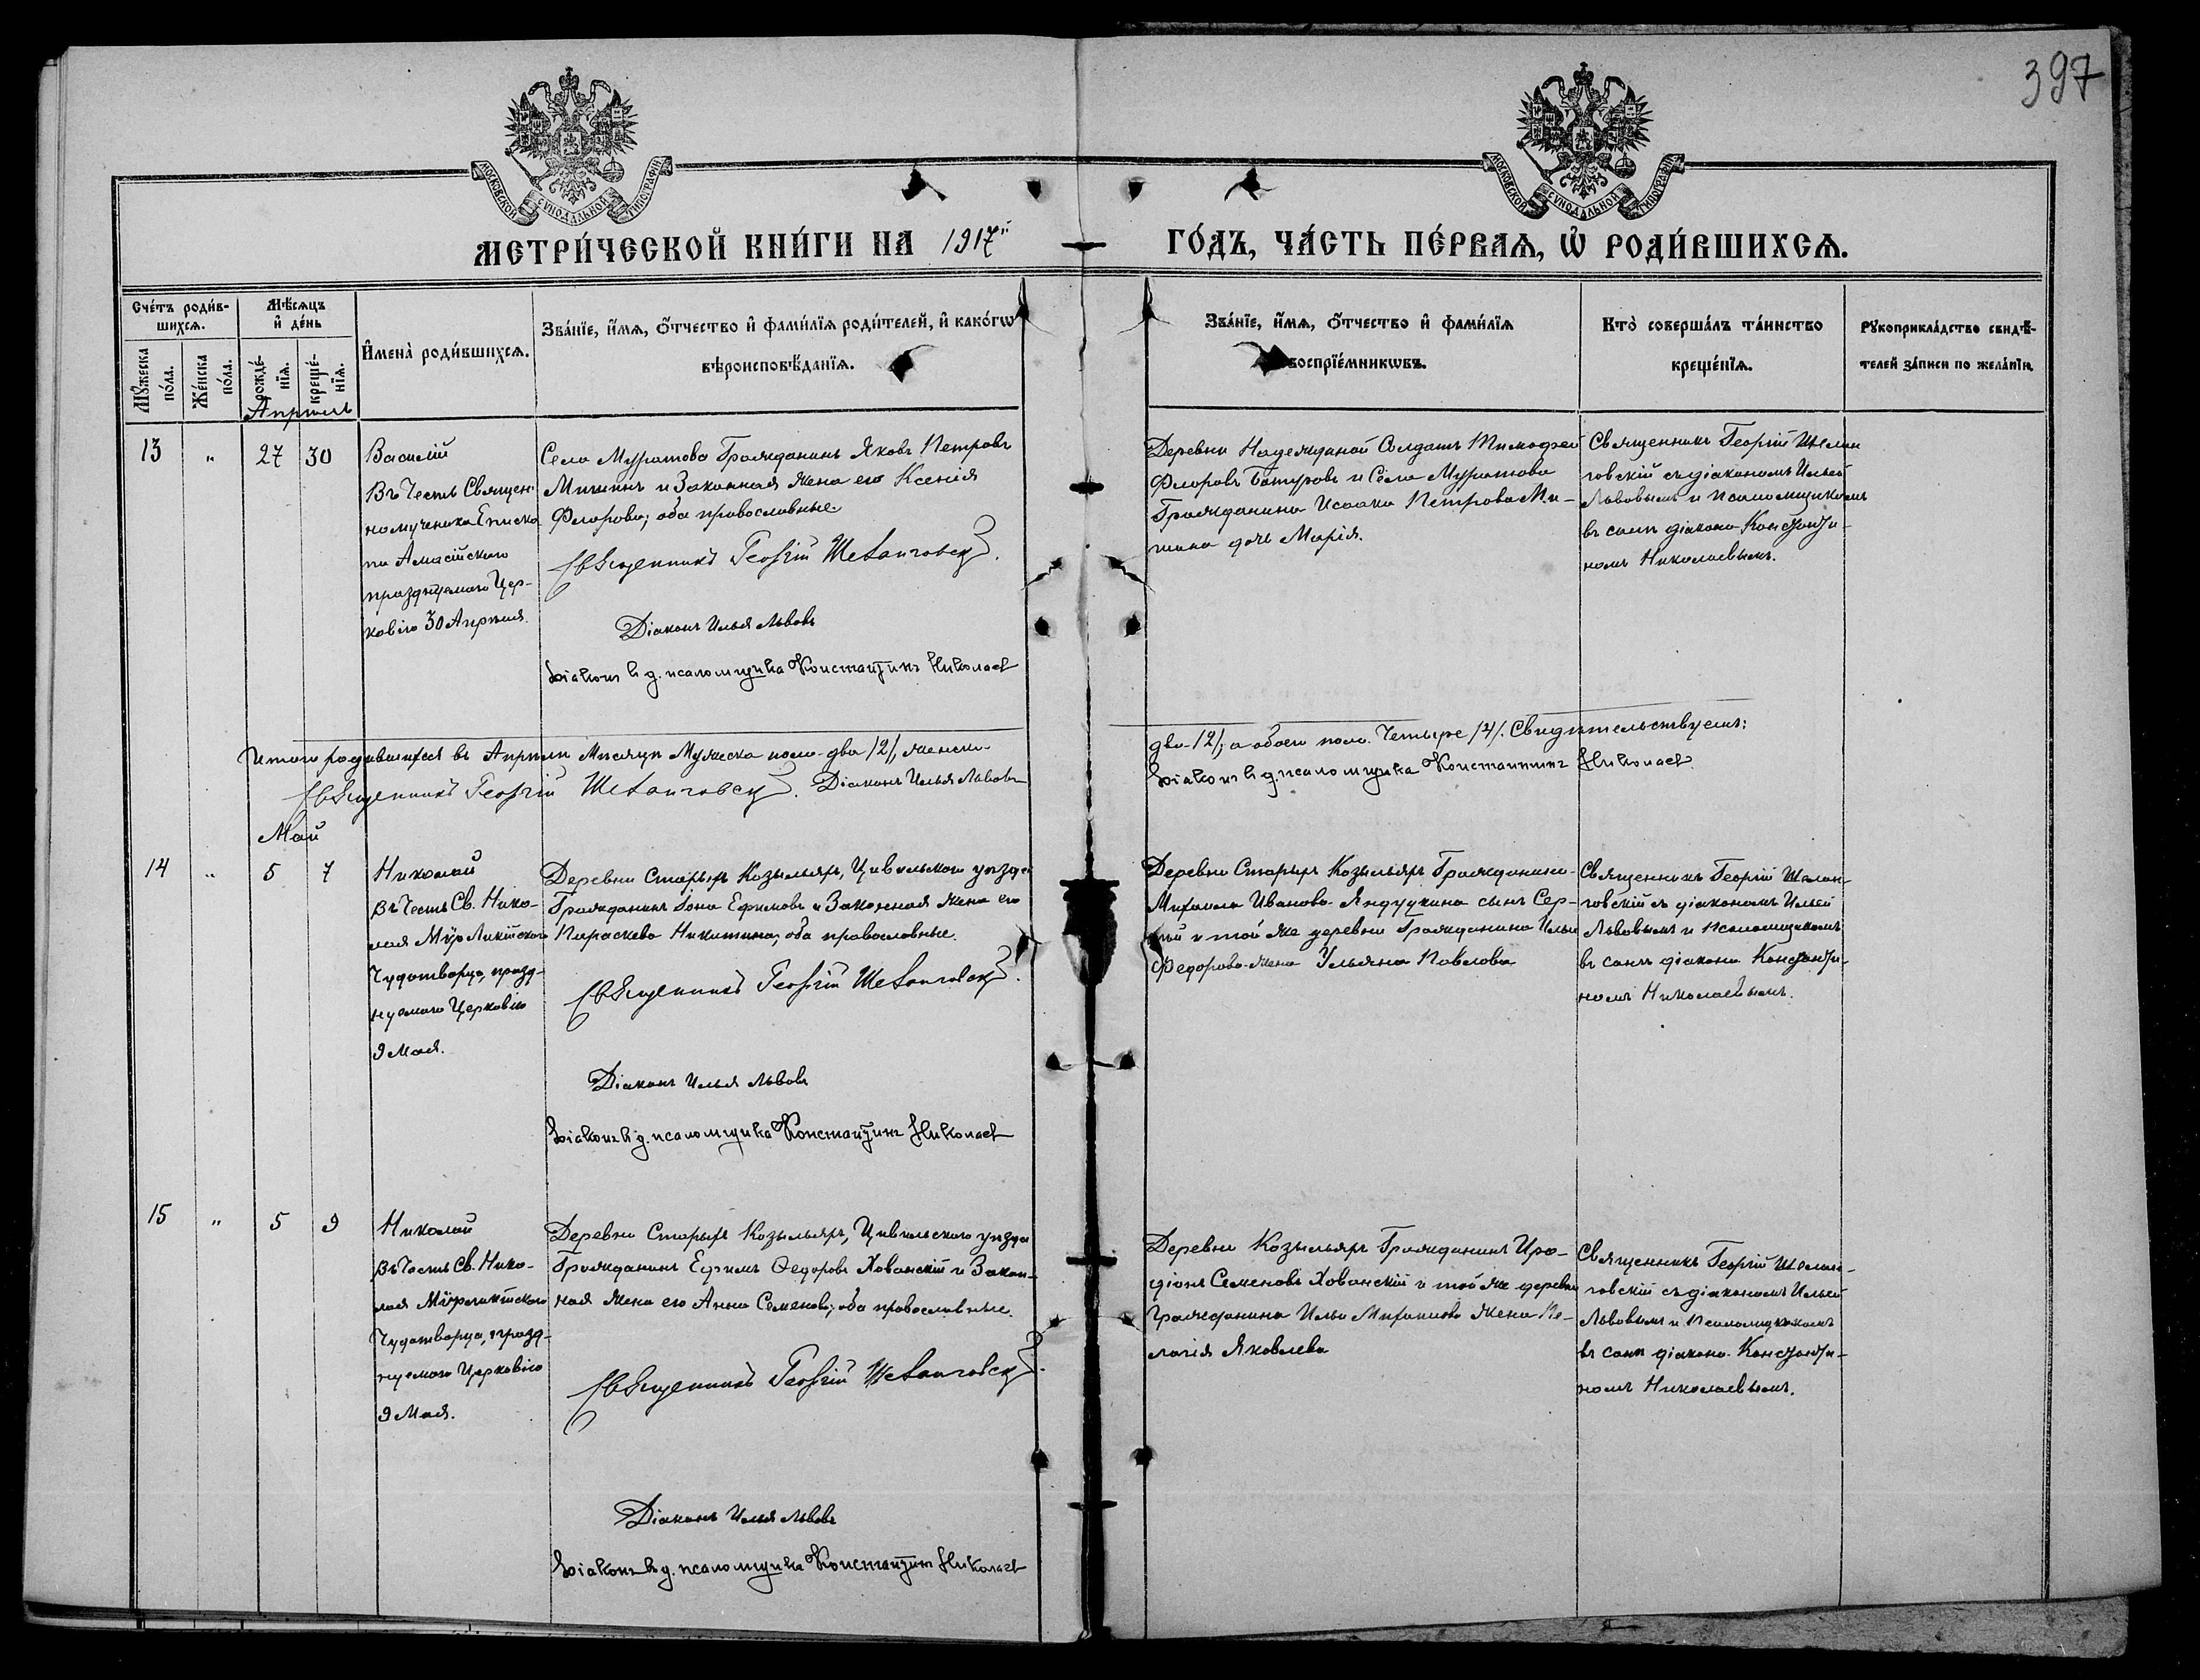 397
МОСКОВСКОЙ СѴНОДАЛЬНОЙ ТИПОГРАФІИ
МОСКОВСКОЙ СѴНОДАЛЬНОЙ ТИПОГРАФІИ
МЕТРИ́ЧЕСКОЙ КНИ́ГИ НА 1917й ГО́ДЪ, ЧА́СТЬ ПЕ́РВАЯ, Ѡ҆ РОДИ́ВШИХСЯ.
Сче́тъ роди́в-
шихся.
Мѣ́сяцъ
и҆ де́нь
Мꙋ́жеска
по́ла.
Же́нска
по́ла.
рожде́-
нїѧ.
креще́-
нїѧ.
И҆мена̀ роди́вшихся.
Зва́нїе, и҆́мѧ, ѻ҆́тчество и҆ фами́лїѧ роди́телей, и҆ како́гѡ
вѣроисповѣ́данїѧ.
Зва́нїе, и҆́мѧ, ѻ҆́тчество и҆ фами́лїѧ
воспрїе́мникѡвъ.
Кто̀ соверша́лъ та́инство
креще́нїѧ.
Рꙋкоприкла́дство свидѣ́-
телей за́писи по жела́нїю.
Апрѣль
13 " 27 30
Василій
Въ Честь Священ-
номученика Еписко
па Амасійскаго
празднуемаго Цер-
ковію 30 Апрѣля.
Села Муратова Гражданинъ Яковъ Петровъ
Мишинъ и Законная жена его Ксенія
Флорова; оба православные.
Священникъ Георгій Шеланговскій.
Діаконъ Илья Львовъ
Діаконъ и д. псаломщика Константинъ Николаевъ
Деревни Надеждиной Солдатъ Тимофей
Флоровъ Батуровъ и Села Муратова
Гражданина Исаака Петрова Ми-
шина дочь Марія.
Священникъ Георгій Шелан
говскій съ діакономъ Ильей
Львовымъ и псаломщикомъ
въ санѣ діакона Константи-
номъ Николаевымъ.
Итого родившихся въ Апрѣлѣ Мѣсяцѣ Мужеска пола два /2/, женска-
два /2/; а обоего пола Четыре /4/. Свидѣтельствуемъ:
Священникъ Георгій Шеланговскій. Діаконъ Илья Львовъ
Діаконъ и д. псаломщика Константинъ Николаевъ
Май
14 " 5 7
Николай
Въ Честь Св. Нико-
лая Мѵръ Ликійскаго
Чудотворца, празд-
нуемаго Церковію
9 Мая.
Деревни Старыхъ Козыльяръ, Цивильскаго уѣзда
Гражданинъ Іона Ефимовъ и Законная жена его
Параскева Никитина; оба православные.
Священникъ Георгій Шеланговскій.
Діаконъ Илья Львовъ
Діаконъ и д. псаломщика Константинъ Николаевъ
Деревни Старыхъ Козыльяръ Гражданина-
Михаила Иванова Яндукина сынъ Сер-
гѣй и той же деревни Гражданина Ильи
Федорова жена Ульяна Павлова
Священникъ Георгій Шелан-
говскій съ діакономъ Ильей
Львовымъ и псаломщикомъ
въ санѣ діакона Константи-
номъ Николаевымъ.
15 " 5 9
Николай
Въ Честь Св. Нико-
лая Мѵрликійскаго
Чудотворца, празд-
нуемаго Церковію
9 Мая.
Деревни Старыхъ Козыльяръ, Цивильскаго уѣзда
Гражданинъ Ефимъ Ѳедоровъ Хованскій и Закон-
ная жена его Анна Семенова; оба православные.
Священникъ Георгій Шеланговскій.
Діаконъ Илья Львовъ
Діаконъ и д. псаломщика Константинъ Николаевъ
Деревни Козыльяръ Гражданинъ Иро-
діонъ Семеновъ Хованскій и той же деревни
Гражданина Ильи Михаилова жена Пе-
лагія Яковлева
Священникъ Георгій Шелан-
говскій съ діакономъ Ильей
Львовымъ и Псаломщикомъ
въ санѣ діакона Константи-
номъ Николаевымъ.